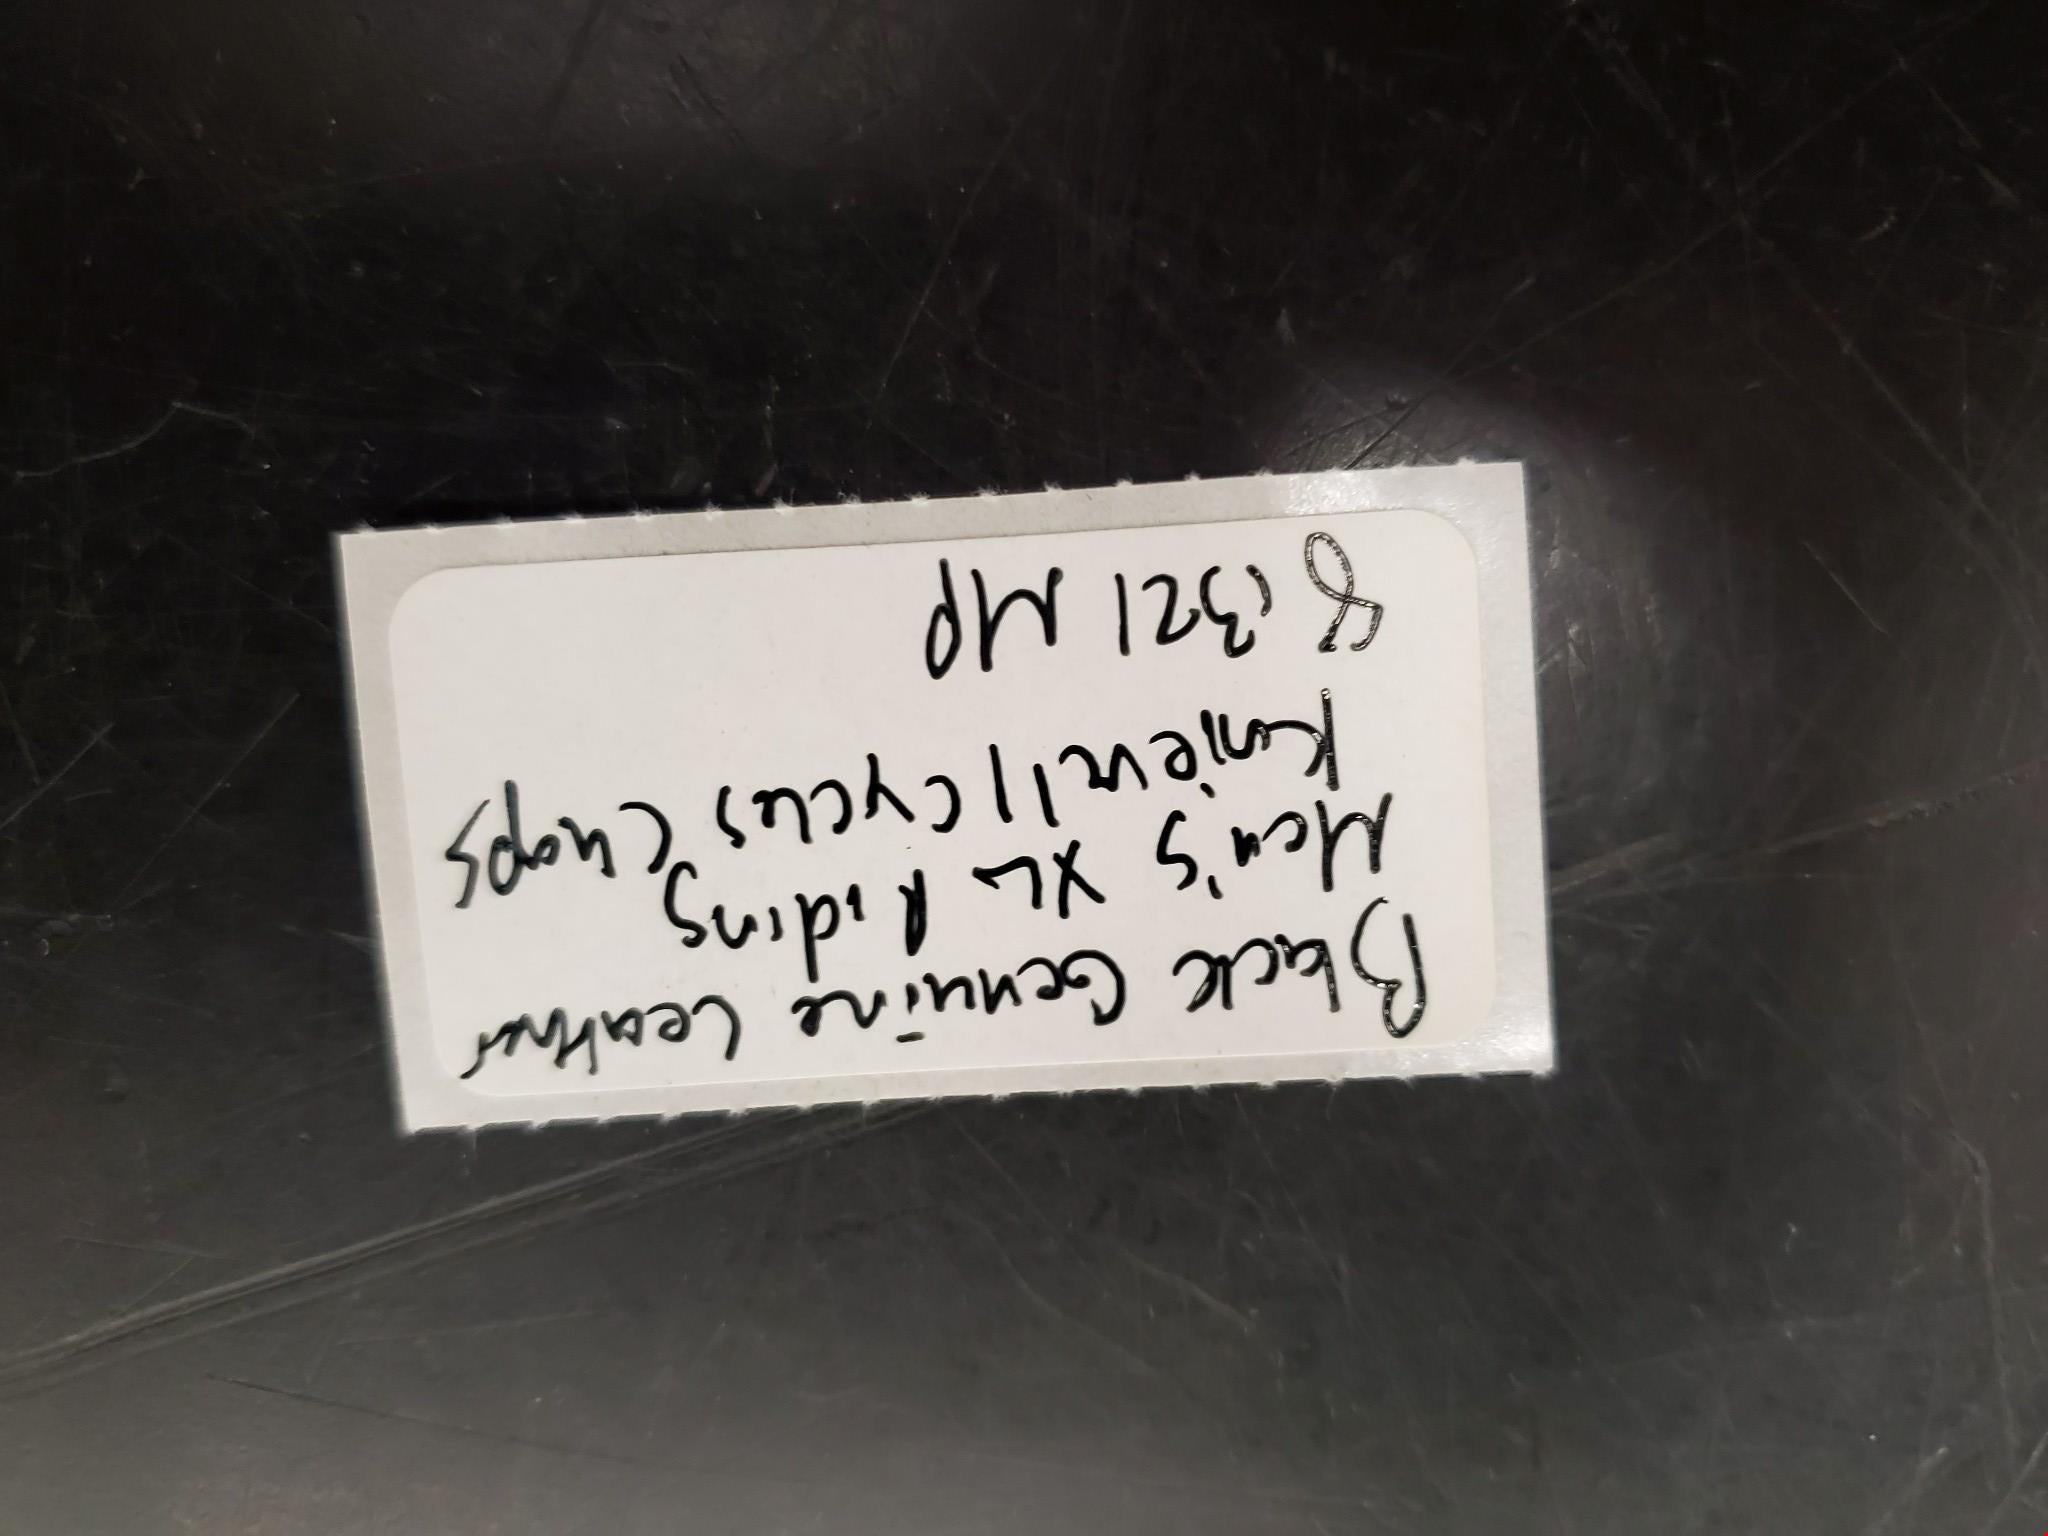 Black Genuine Leather
Men's XL Riding
Knievel Cycles Chaps
8,321 MP